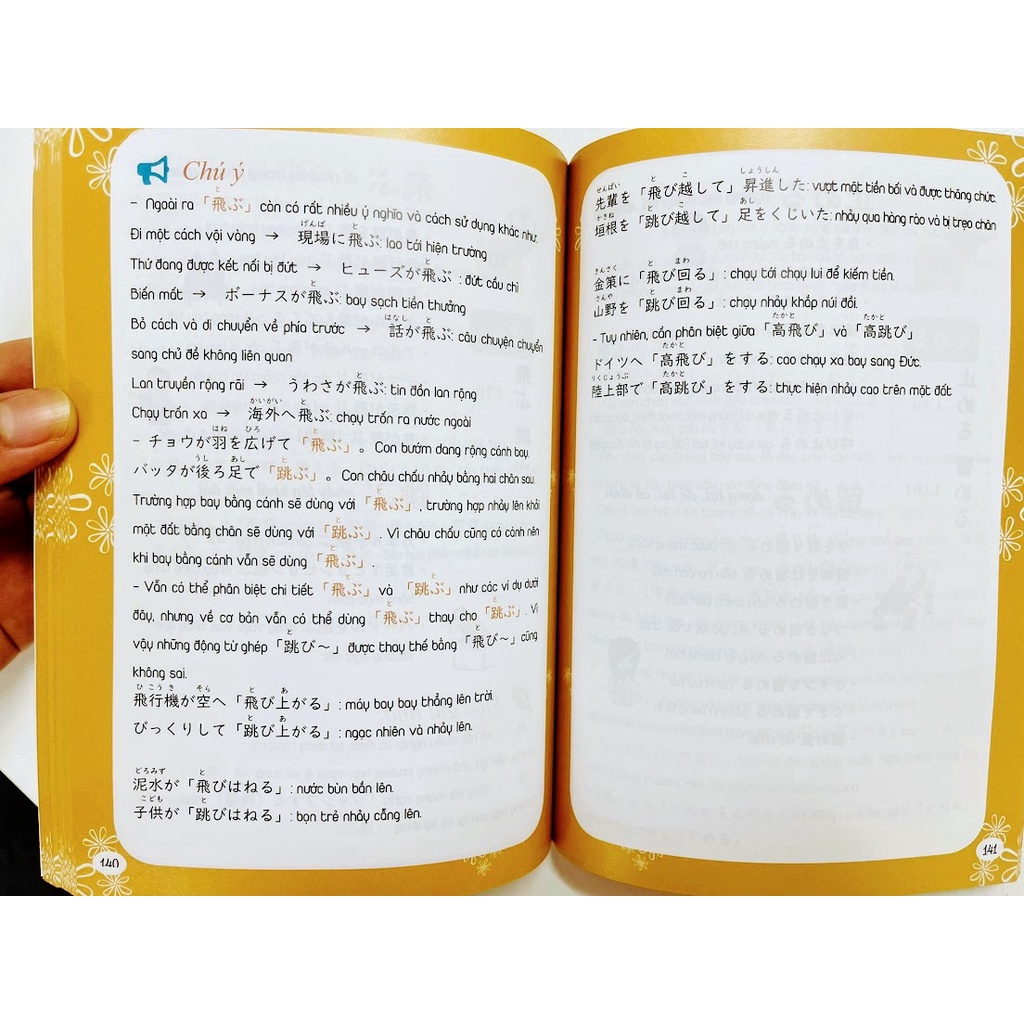 Chú ý
- Ngoài ra 「飛ぶ」 còn có rất nhiều ý nghĩa và cách sử dụng khác như:
Đi một cách vội vàng → 現場に飛ぶ: lao tới hiện trường
Thứ đang được kết nối bị đứt → ヒューズが飛ぶ : đứt cầu chì
Biến mất → ボーナスが飛ぶ: bay sạch tiền thưởng
Bỏ cách và di chuyển về phía trước → 話が飛ぶ: câu chuyện chuyển
sang chủ đề không liên quan
Lan truyền rộng rãi → うわさが飛ぶ: tin đồn lan rộng
Chạy trốn xa → 海外へ飛ぶ: chạy trốn ra nước ngoài
- チョウが羽を広げて「飛ぶ」。Con bướm dang rộng cánh bay.
バッタが後ろ足で「跳ぶ」。Con châu chấu nhảy bằng hai chân sau.
Trường hợp bay bằng cánh sẽ dùng với 「飛ぶ」, trường hợp nhảy lên khỏi
mặt đất bằng chân sẽ dùng với 「跳ぶ」. Vì châu chấu cũng có cánh nên
khi bay bằng cánh vẫn sẽ dùng 「飛ぶ」.
- Vẫn có thể phân biệt chi tiết 「飛ぶ」 và 「跳ぶ」 như các ví dụ dưới
đây, nhưng về cơ bản vẫn có thể dùng 「飛ぶ」 thay cho 「跳ぶ」. Vì
vậy những động từ ghép 「跳び～」 được thay thế bằng 「飛び～」 cũng
không sai.
飛行機が空へ「飛び上がる」: máy bay bay thẳng lên trời.
びっくりして「跳び上がる」: ngạc nhiên và nhảy lên.
泥水が「飛びはねる」: nước bùn bắn lên.
子供が「跳びはねる」: bọn trẻ nhảy cẫng lên.
140
先輩を「飛び越して」昇進した: vượt mặt tiền bối và được thăng chức.
垣根を「跳び越して」足をくじいた: nhảy qua hàng rào và bị trẹo chân
金策に「飛び回る」: chạy tới chạy lui để kiếm tiền.
山野を「跳び回る」: chạy nhảy khắp núi đồi.
- Tuy nhiên, cần phân biệt giữa 「高飛び」 và 「高跳び」
ドイツへ「高飛び」をする: cao chạy xa bay sang Đức.
陸上部で「高跳び」をする: thực hiện nhảy cao trên mặt đất
141